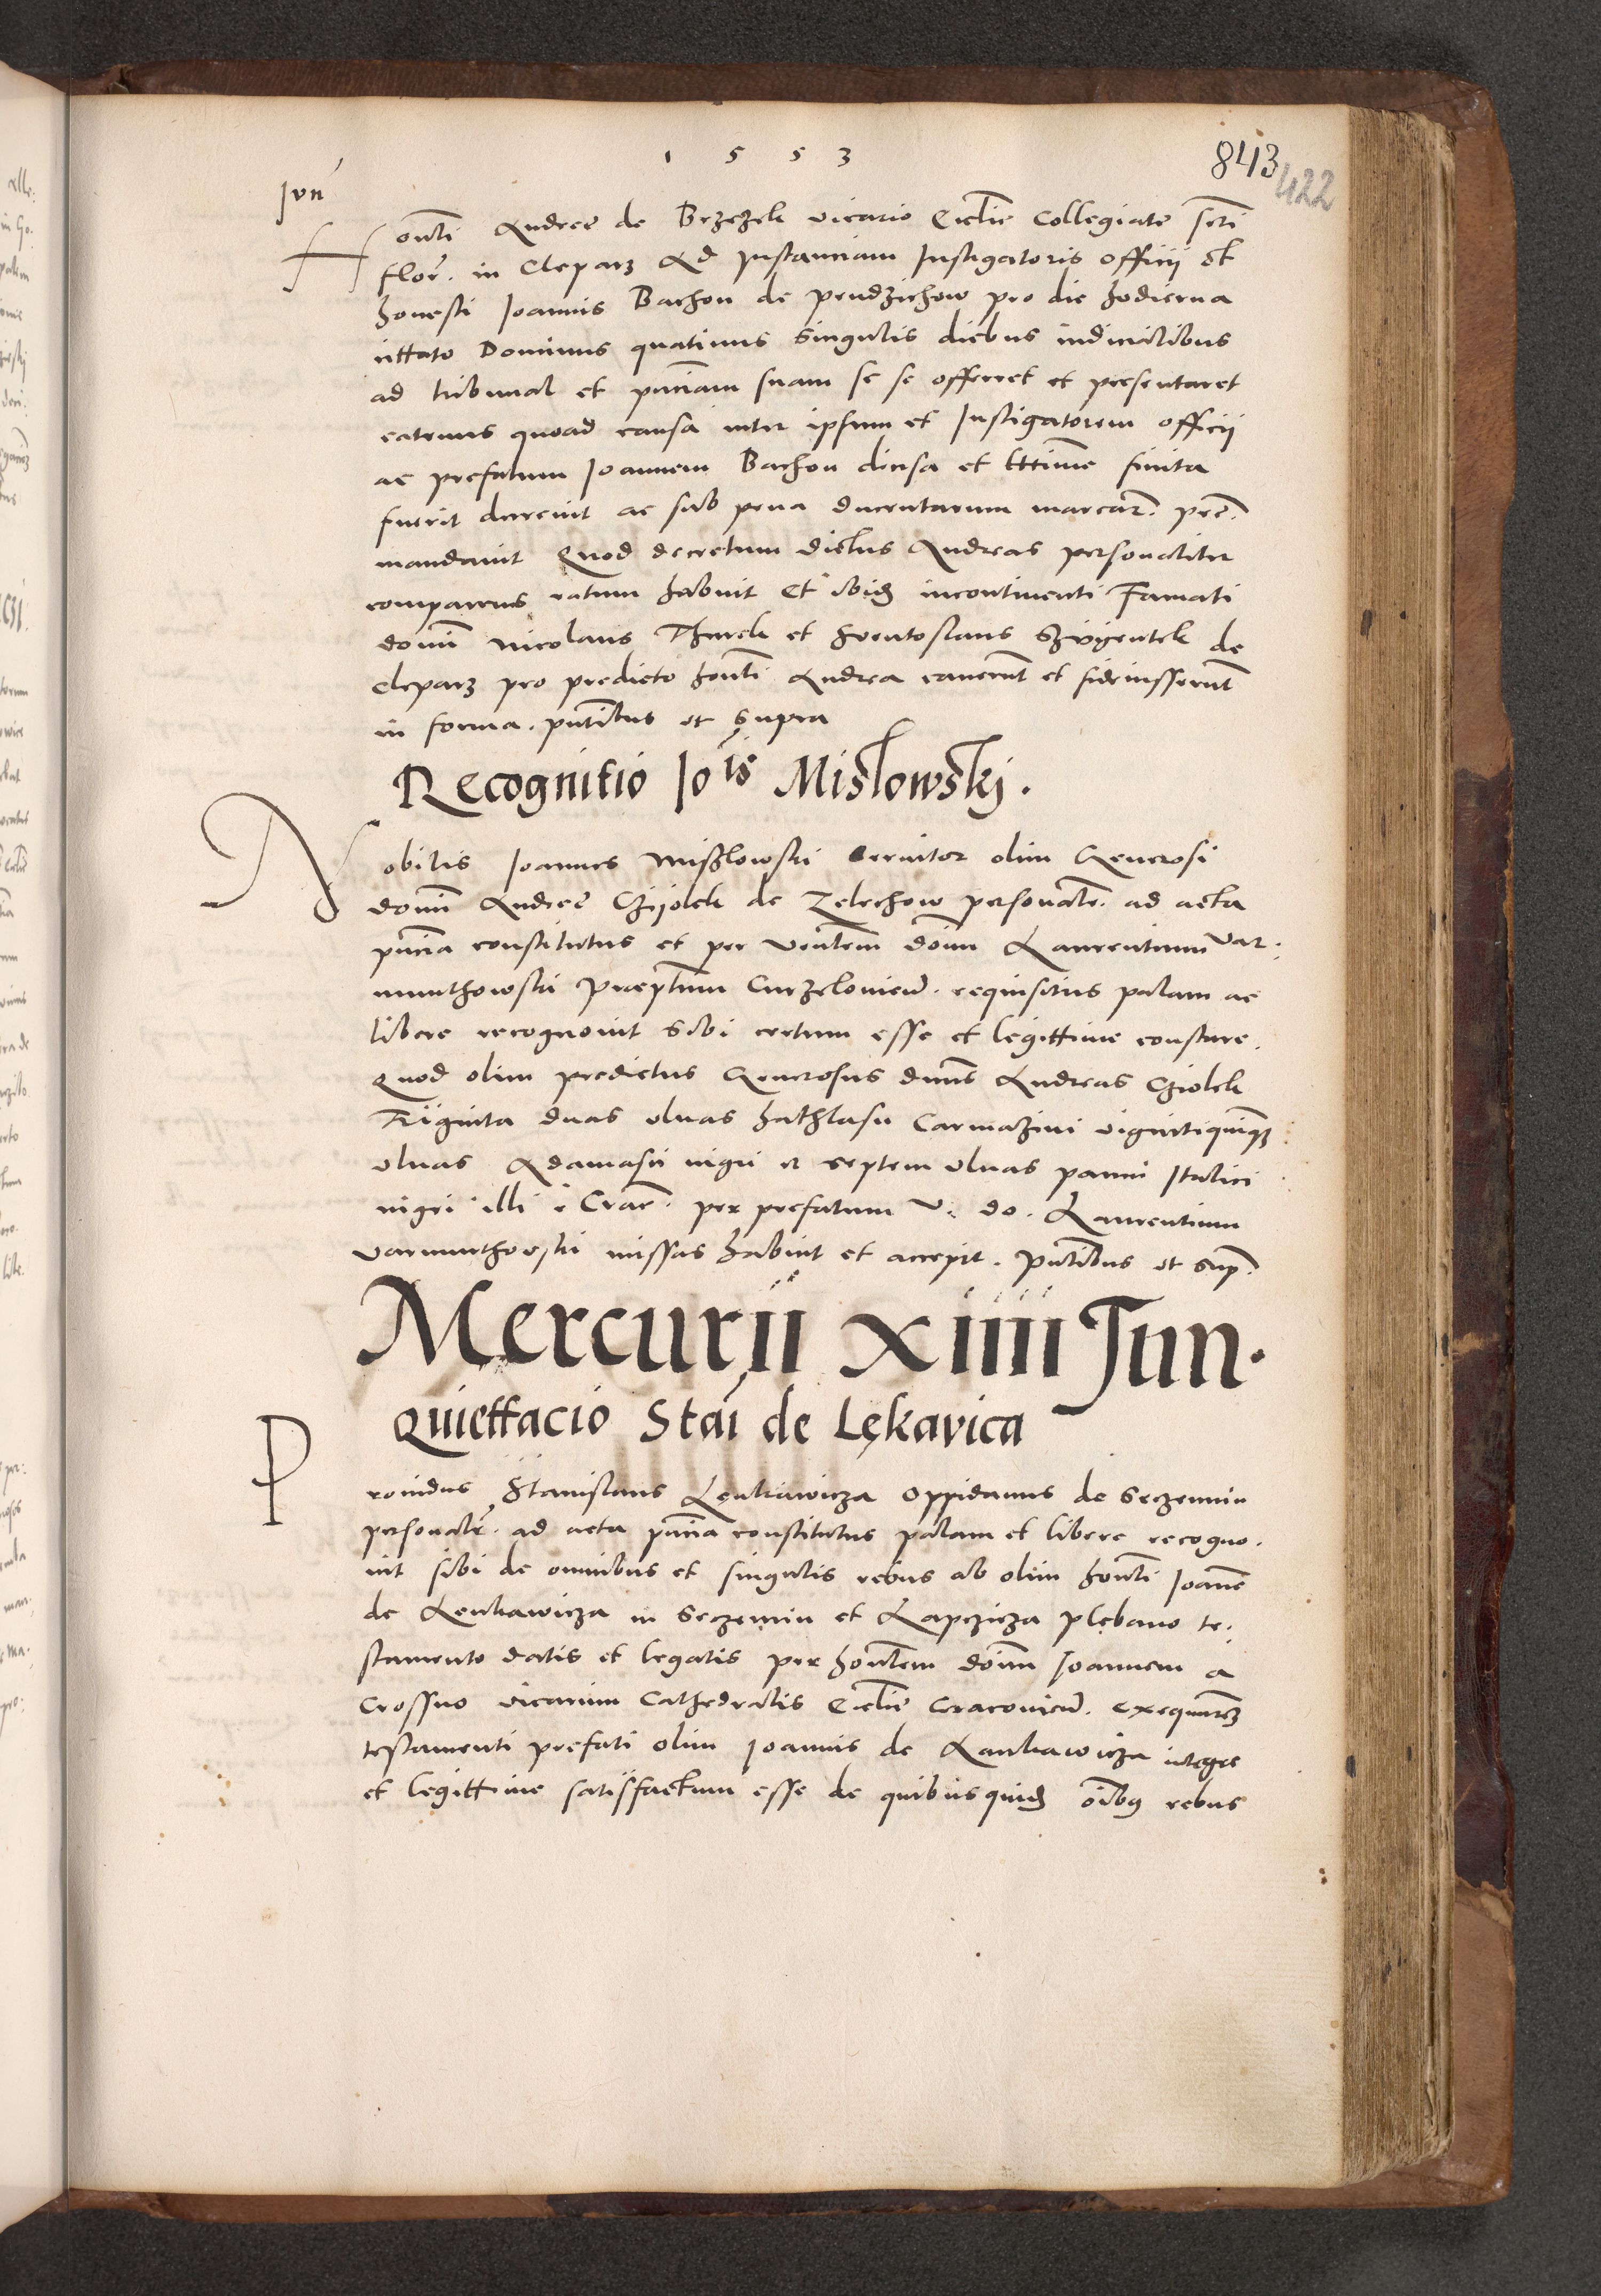 1553
843
422
Jun
Honti Andree de Brzezek vicario Eclie Collegiate scti
flor. in Cleparz Ad Instanciam Instigatoris officii et
honesti Joannis Bachon de prudzichow pro die hodierna
cittato Dominus quatinus singulis diebus iudicialibus
ad tribunal et pnciam suam se se offerret et presentaret
eatenus quoad causa inter ipsum et Instigatorem officii
ac prefatum Joannem Bachon discussa et ltttime finita
fuerit decrevit ac sub pena ducentarum marcar. pec.
mandavit Quod decretum dictus Andreas personaliter
comparens ratum habuit Et ibid incontinenti Famati
domi Nicolaus Thurek et Swentoslaus Szvigentek de
Cleparz pro predicto honti Andrea caverunt et fideiusserunt
in forma. pntibus ut supra
Recognitio Jois Mislowskj.
Nobilis Joannes Mislowski servitor olim Generosi
domi Andree Cziolek de Zelechow personalr. ad acta
pncia constitutus et per venlem doim Laurentium Var.
munthowski Praeptum Curzelovien. requisitus palam ac
libere recognovit sibi certum esse et legittime constare.
Quod olim predictus Generosus dnns Andreas Cziolek
Triginta duas ulnas hathlasu Carmazini vigintiquinq
ulnas Adamasci nigri et septem ulnas panni Italici
nigri illi i Crac. per prefatum V. do. Laurentium
Varmunthowski missas habuit et accepit. pntibus ut sup.
Mercurii xiiii Jun.
Quiettacio Stai de Lękavica
Providus Stanislaus Lenkawicza oppidanus de Seczemin
personalr. ad acta pncia constitutus palam et libere recogno.
vit sibi de omnibus et singulis rebus ab olim honti Joane
de Lenkawicza in Seczemin et Lapczicza plebano te.
stamento datis et legatis per hontem doim Joannem a
Crossno vicarium Cathedralis Eclie Cracovien. exequutorem
testamenti prefati olim Joannis de Lankawicza integre
et legittime satisfactum esse de quibusquid oibq rebus